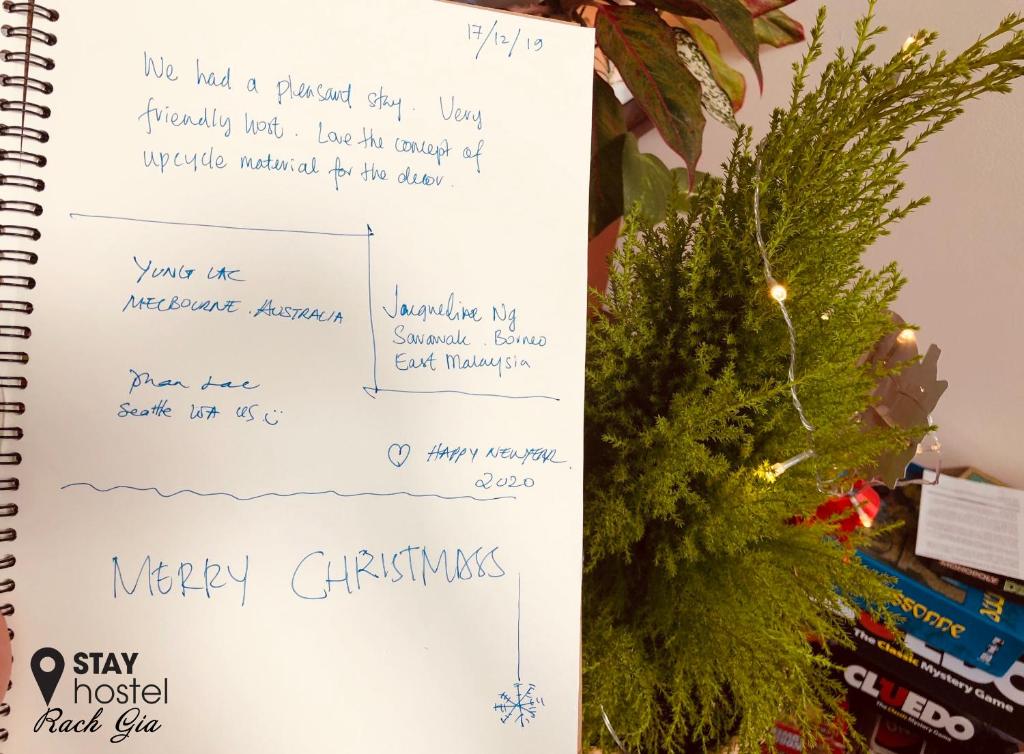 17/12/19
We had a pleasant stay. Very
friendly host. Love the concept of
upcycle material for the decor.
YUNG LAC
MELBOURNE. AUSTRALIA
Jacqueline Ng
Sarawak. Borneo
East Malaysia
Lac
Seattle WA US
♡ HAPPY NEWYEAR.
2020
MERRY CHRISTMASS
STAY
hostel
Rach Gia
The Classic Mystery Game
CLUEDO
The Classic Mystery Game